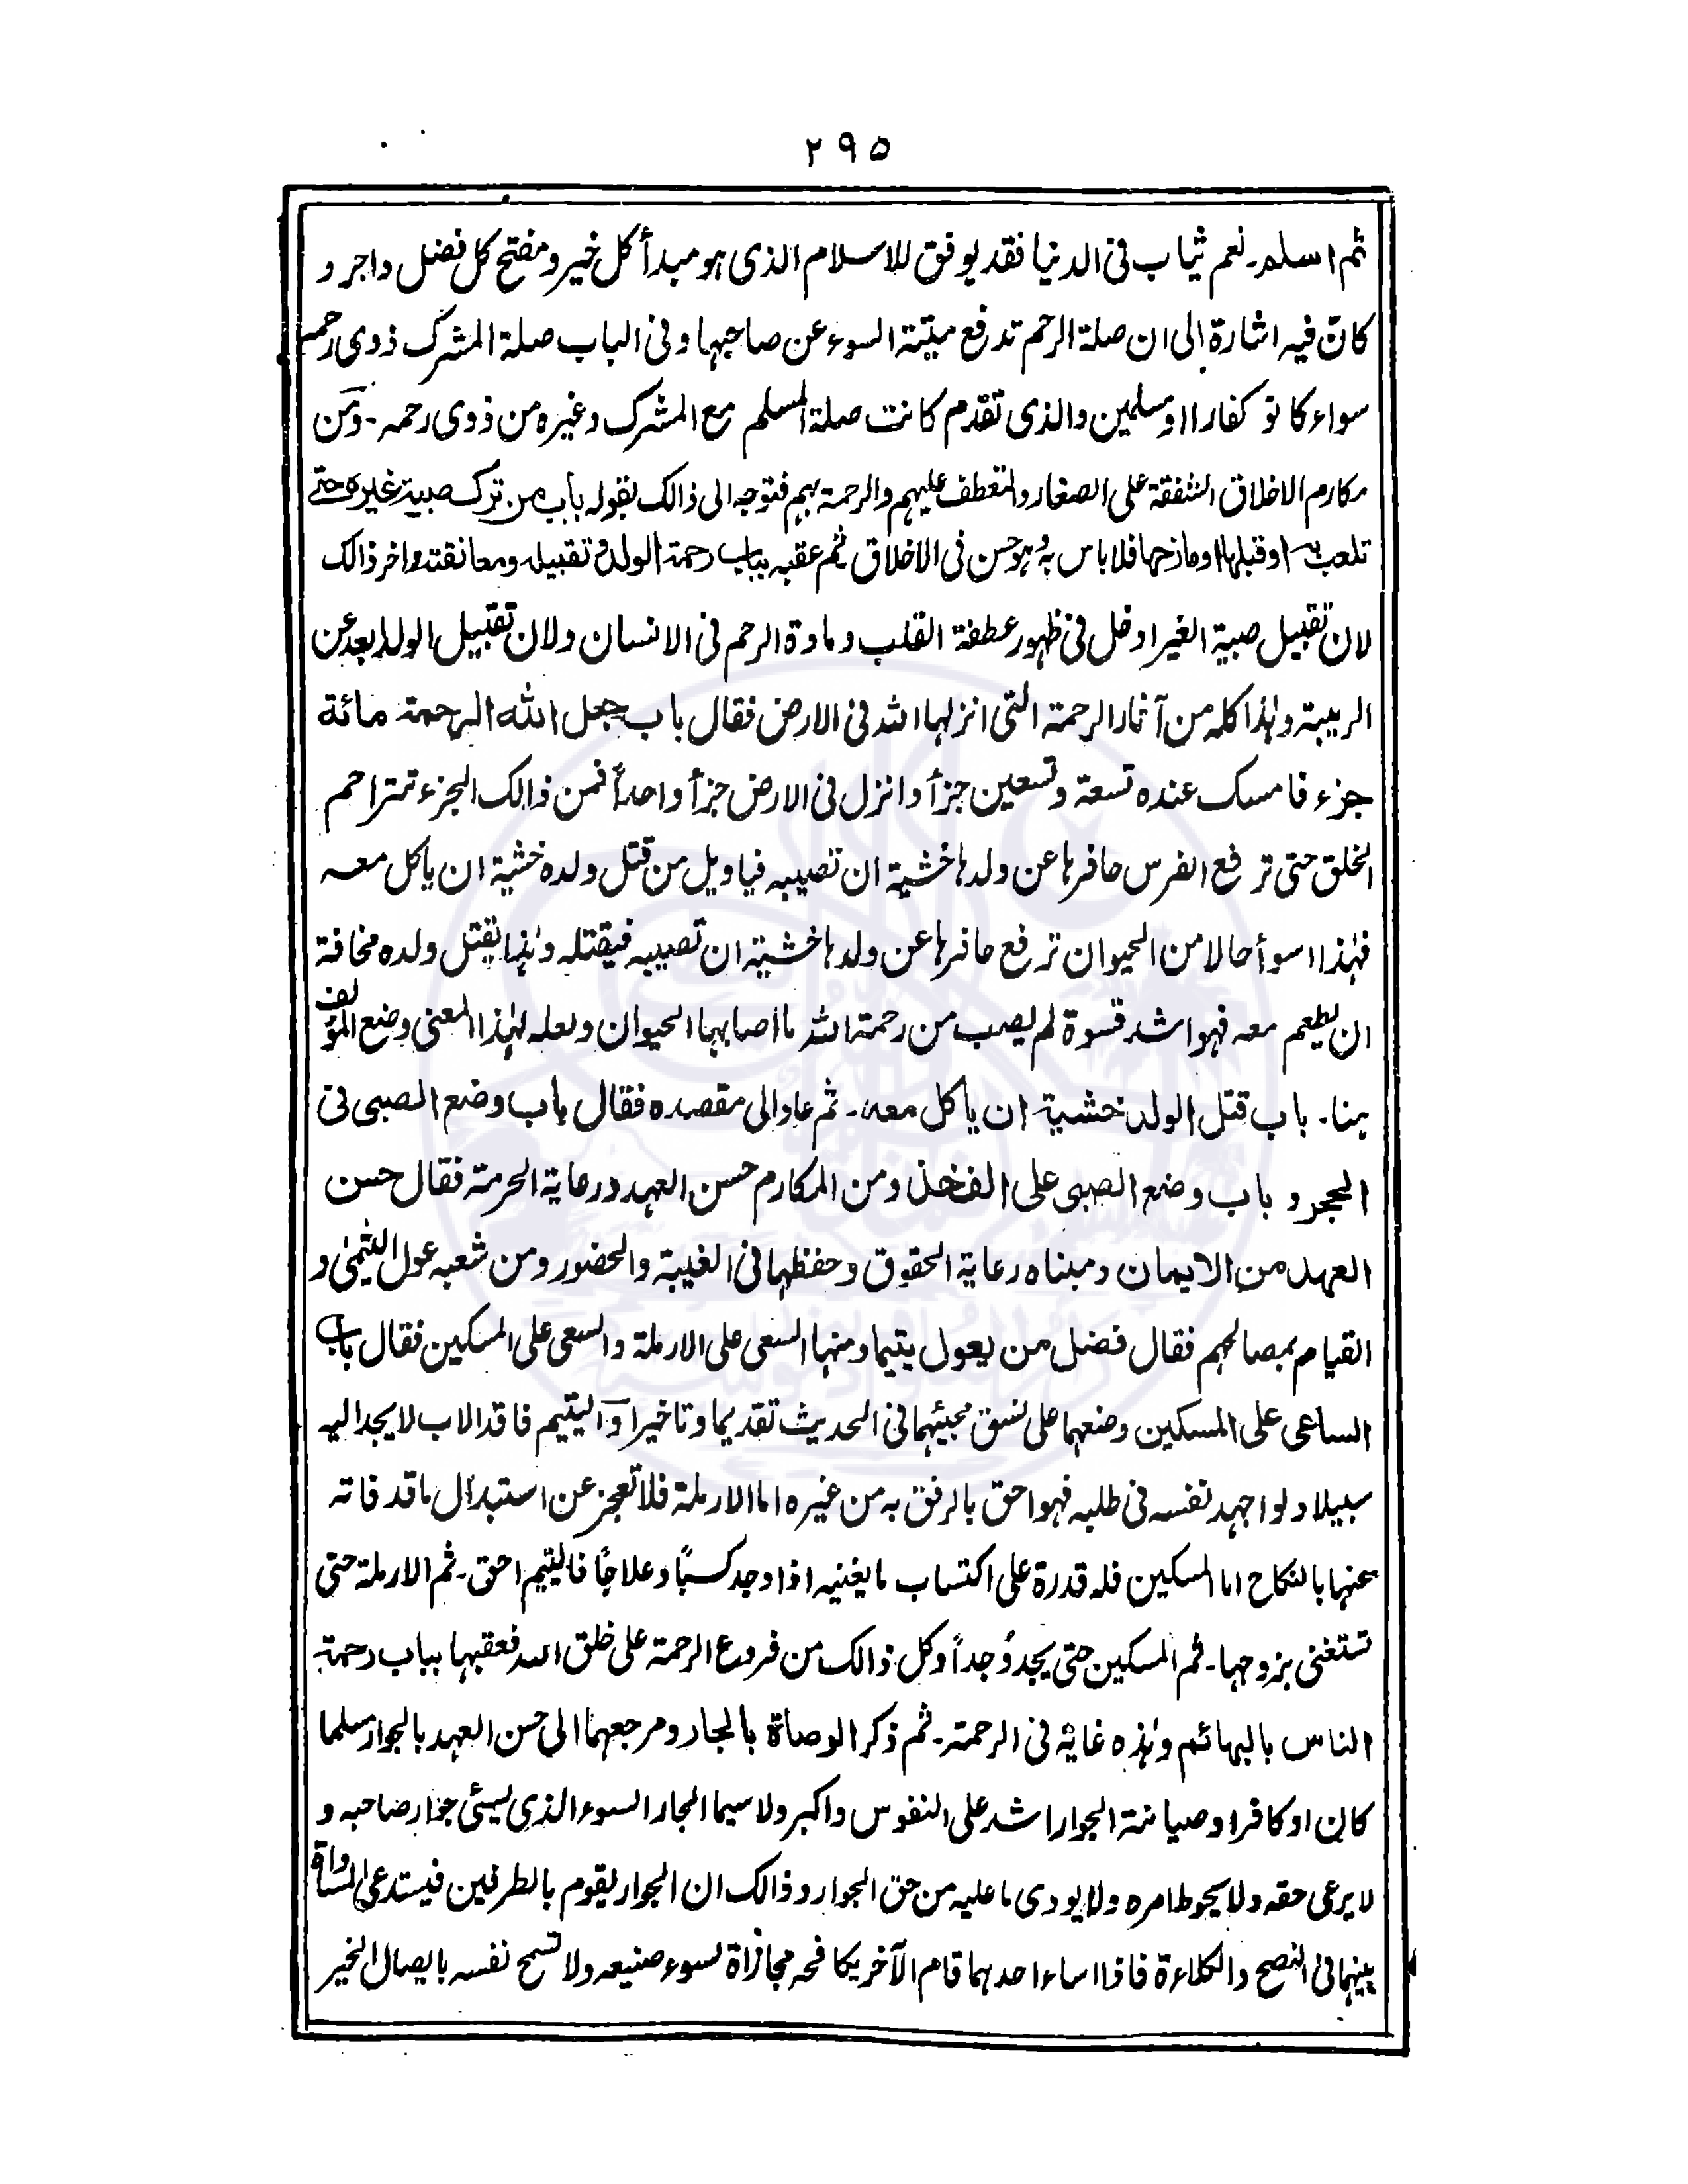 ٢٩٥
ثم اسلم۔ نعم ثياب فى الدنيا فقد يوفق للاسلام الذى هو مبدأ كل خير و مفتح كل فضل واجر و
كان فيه اشارة الى ان صلة الرحم تدفع ميتة السوء عن صاحبها و فى الباب صلة المشرك ذوى رحمه
سواء كانو كفارا او مسلمين والذى تقدم كانت صلة المسلم مع المشرك وغيره من ذوى رحمه۔ ومن
مكارم الاخلاق الشفقة على الصغار والتعطف عليهم والرحمة بهم فتوجه الى ذالك بقوله باب من ترك صبية غيره حتى
تلعب به او قبلها او مازحها فلا باس به وهو حسن فى الاخلاق ثم عقبه بباب رحمة الولد و تقبيله ومعانقته واخر ذالك
لان تقبيل صبية الغير ادخل فى ظهور عطفة القلب ومادة الرحم فى الانسان ولان تقبيل الولد ابعد عن
الريبة وهٰذا كله من آثار الرحمة التى انزلها الله فى الارض فقال باب جعل الله الرحمة مائة
جزء فامسك عنده تسعة وتسعين جزأ وانزل فى الارض جزأ واحداً فمن ذالك الجزء تتراحم
الخلق حتى ترفع الفرس حافرها عن ولدها خشية ان تصيبه فياويل من قتل ولده خشية ان ياكل معه
فهٰذا اسوأ حالا من الحيوان ترفع حافرها عن ولدها خشية ان تصيبه فيقتله وهٰذا يقتل ولده مخافة
ان يطعم معه فهو اشد قسوة لم يصب من رحمة الله ما اصابها الحيوان ولعله لهٰذا المعنى وضع المؤلف
هنا۔ باب قتل الولد خشية ان ياكل معه۔ ثم عاد الى مقصده فقال باب وضع الصبى فى
الحجر و باب وضع الصبى على الفخذ ومن المكارم حسن العهد ورعاية الحرمة فقال حسن
العهد من الايمان ومبناه رعاية الحقوق وحفظها فى الغيبة والحضور ومن شعبه عول اليتمىٰ و
القيام بمصالحهم فقال فضل من يعول يتيما ومنها السعى على الارملة والسعى على المسكين فقال باب
الساعى على المسكين وضعهما على نسق مجيئهما فى الحديث تقديما وتاخيرا واليتيم فاقد الاب لا يجد اليه
سبيلا ولو اجهد نفسه فى طلبه فهو احق بالرفق به من غيره اما الارملة فلا تعجز عن استبدال ما قد فاته
عنها بالنكاح اما المسكين فله قدرة على اكتساب ما يغنيه اذا وجد كسبًا وعلاجًا فاليتيم احق۔ ثم الارملة حتى
تستغنى بزوجها۔ ثم المسكين حتى يجد وُجداً وكل ذالك من فروع الرحمة على خلق الله فعقبها بباب رحمة
الناس بالبهائم وهٰذه غاية فى الرحمة۔ ثم ذكر الوصاة بالجار ومرجعهما الى حسن العهد بالجوار مسلما
كان او كافرا وصيانة الجوار اشد على النفوس واكبر ولا سيما الجار السوء الذى يسيئ جوار صاحبه و
لا يرعى حقه ولا يحوط امره ولا يودى ما عليه من حق الجوار وذالك ان الجوار يقوم بالطرفين فيستدعى المساواة
بينهما فى النصح والكلاءة فاذا اساء احدهما قام الآخر يكافحه مجازاة لسوء صنيعه ولا تسمح نفسه بايصال الخير